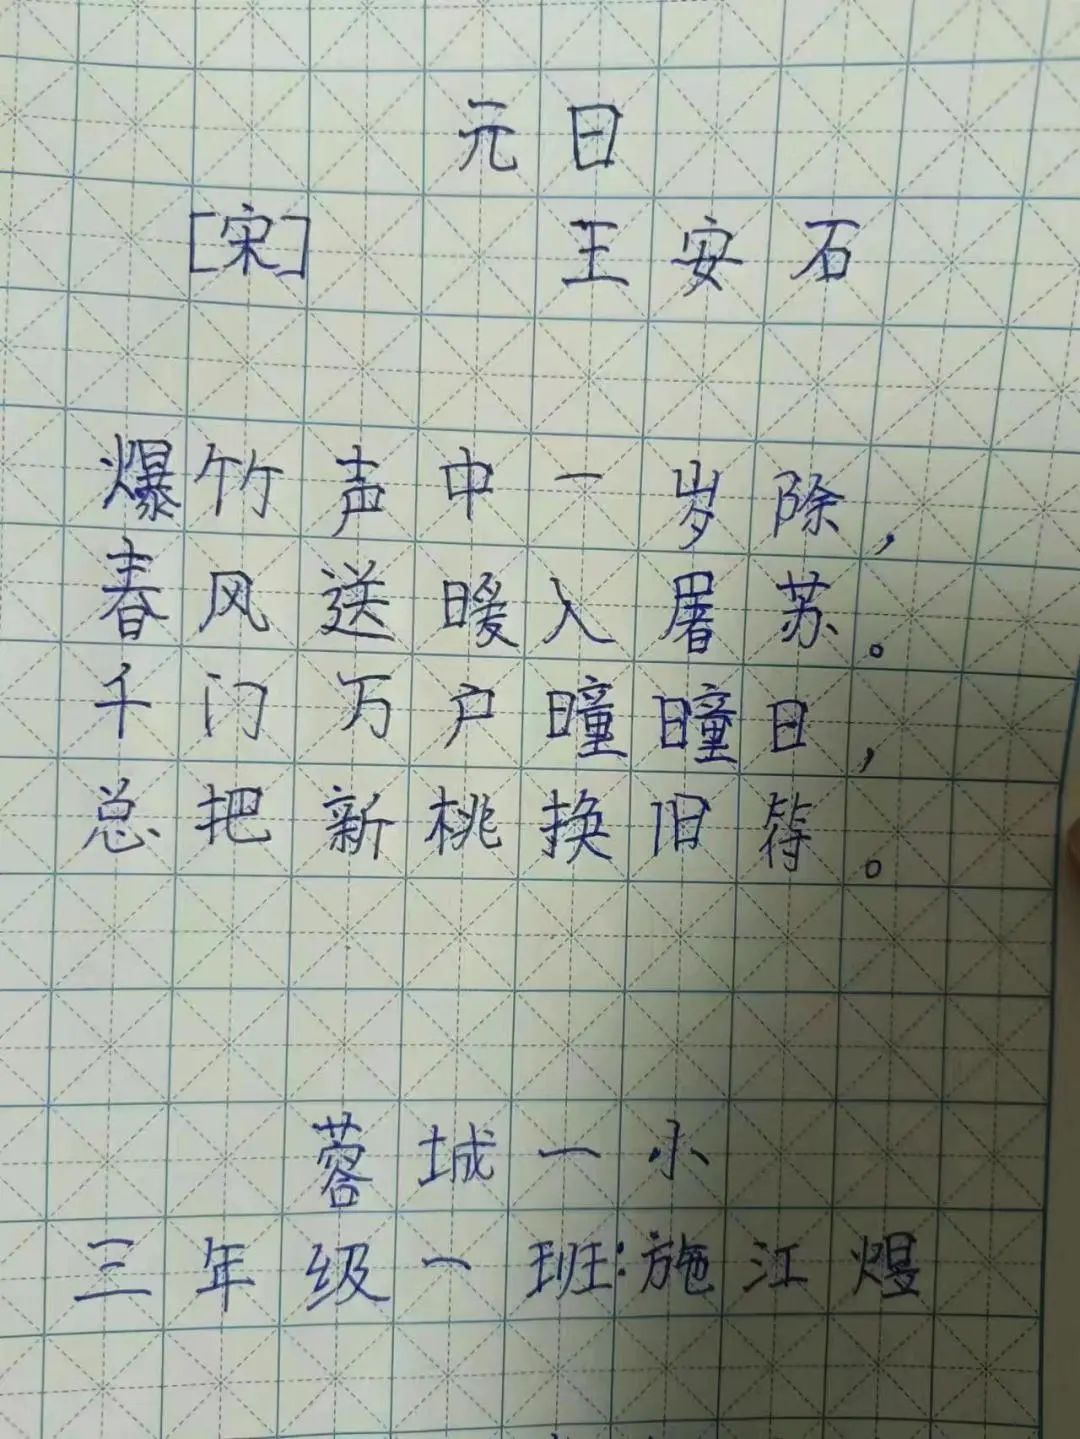 元日
[宋] 王安石
爆竹声中一岁除，
春风送暖入屠苏。
千门万户曈曈日，
总把新桃换旧符。
蓉城一小
三年级一班:施江煜